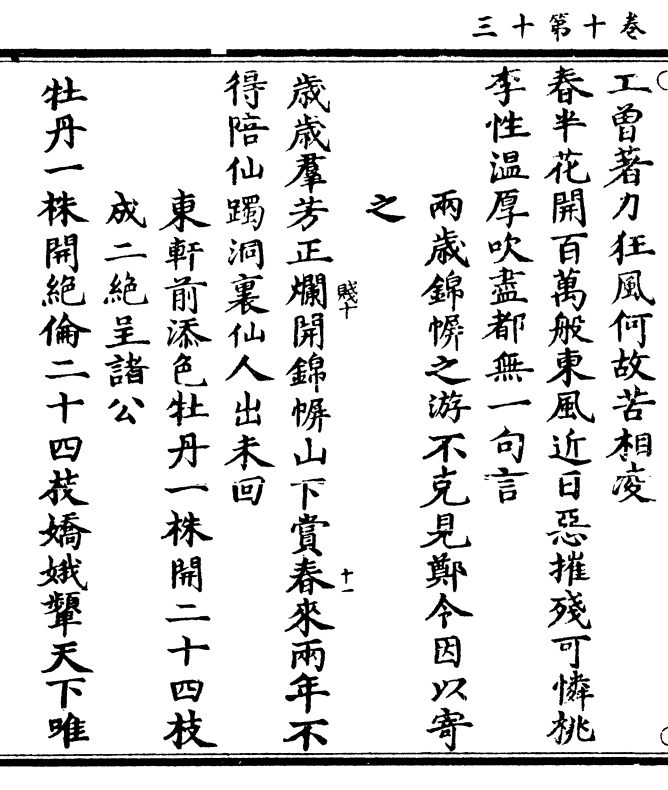 卷十第十三
工曾著力狂風何故苦相凌
春半花開百萬般東風近日惡摧殘可憐桃
李性温厚吹盡都無一句言
兩歳錦幈之游不克見鄭令因以寄
之
賤十
十一
歳歳羣芳正爛開錦幈山下賞春來兩年不
得陪仙躅洞裏仙人出未回
東軒前添色牡丹一株開二十四枝
成二絕呈諸公
牡丹一株開絕倫二十四枝嬌娥顰天下唯